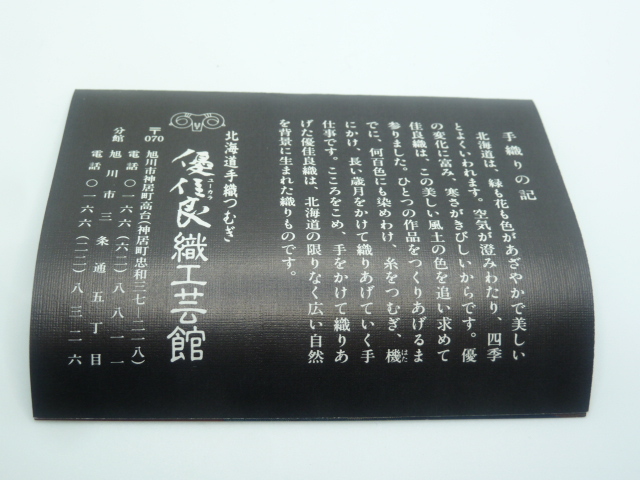 手織りの記
北海道は、緑も花も色があざやかで美しい
とよくいわれます。空気が澄みわたり、四季
の変化に富み、寒さがきびしいからです。優
佳良織は、この美しい風土の色を追い求めて
参りました。ひとつの作品をつくりあげるま
でに、何百色にも染めわけ、糸をつむぎ、機はた
にかけ、長い歳月をかけて織りあげていく手
仕事です。こころをこめ、手をかけて織りあ
げた優佳良織は、北海道の限りなく広い自然
を背景に生まれた織りものです。
北海道手織つむぎ
優佳良織工芸館
ユーカラ
〒070 旭川市神居町高台(神居町忠和三七―二一八)
電話〇一六六(六二)八八一一
分館 旭川市三条通五丁目
電話〇一六六(二二)八三二六